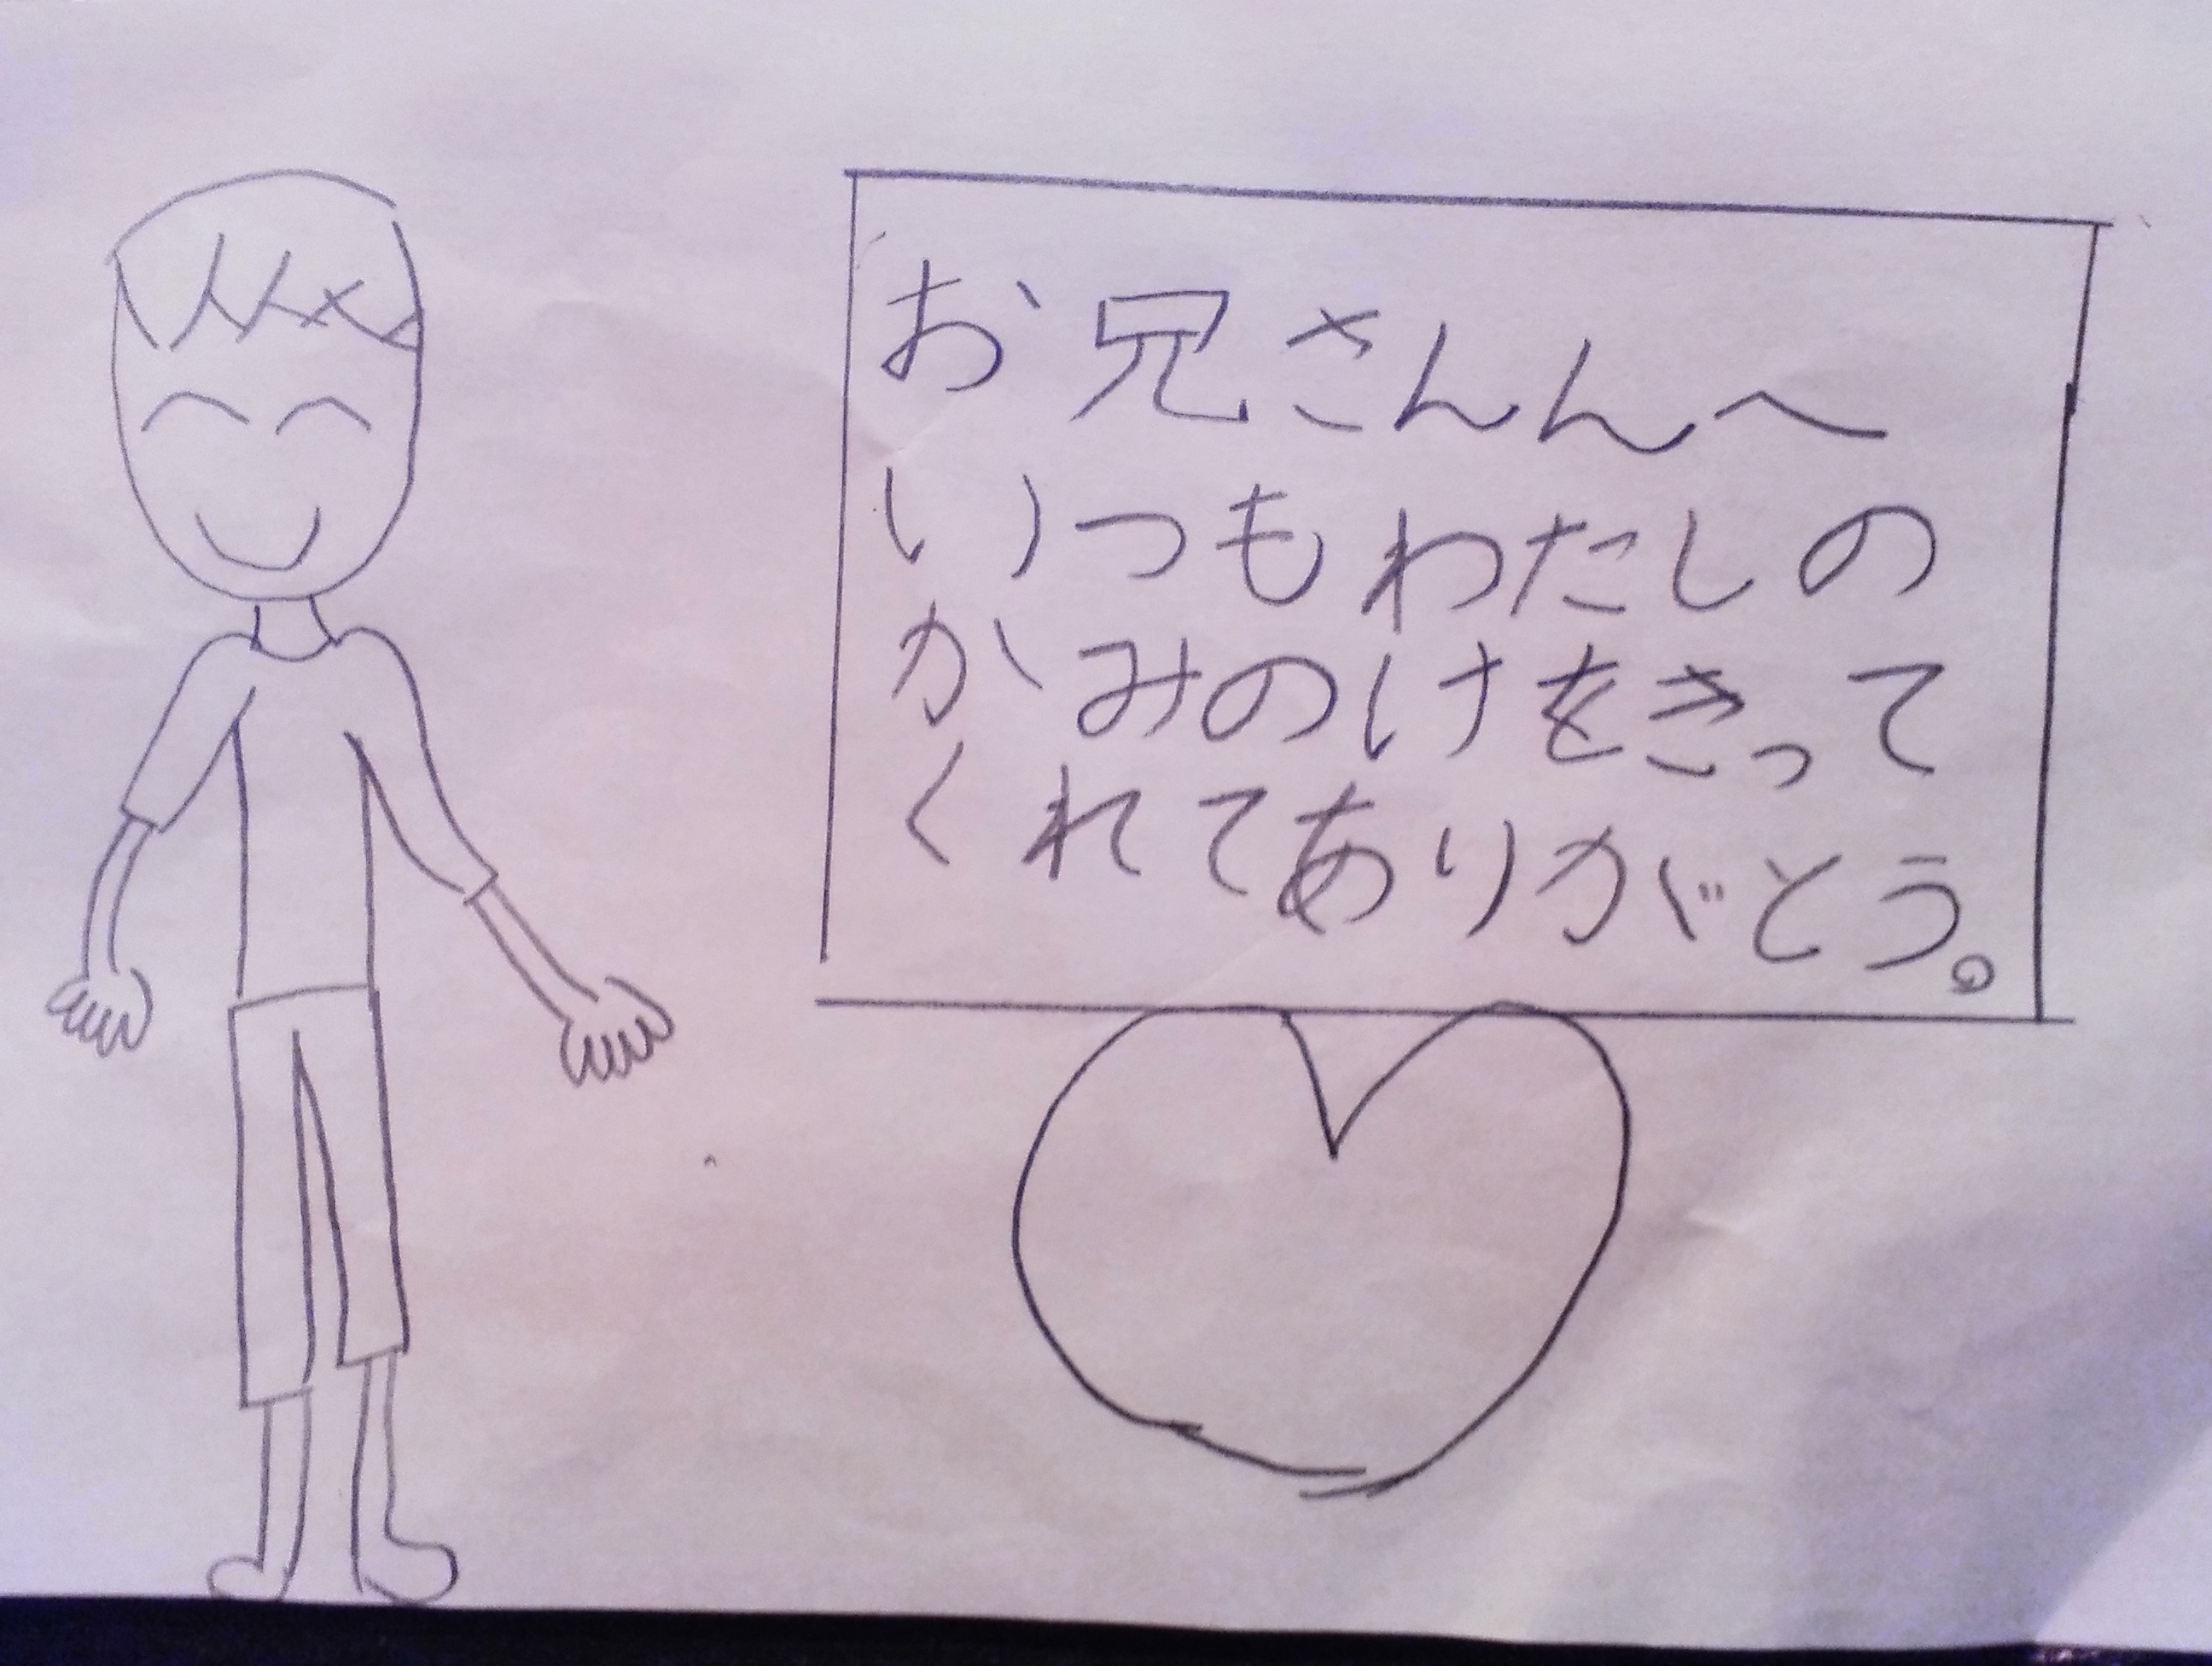 お兄さんんへ
いつもわたしの
かみのけをきって
くれてありがとう。